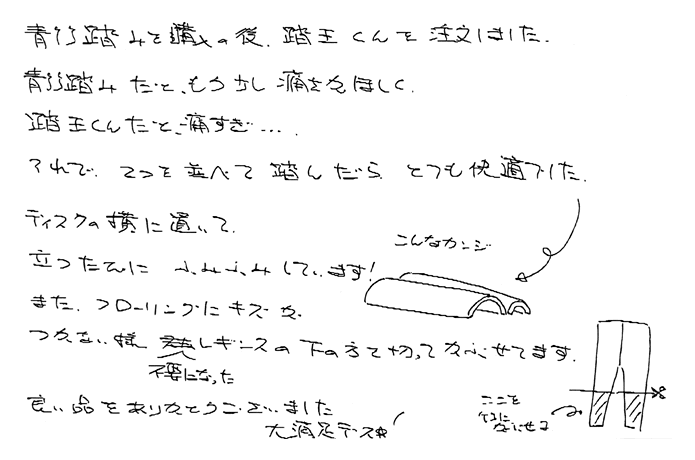 青竹踏みを購入の後、踏王くんを注文しました。
青竹踏みだと、もう少し痛さがほしく、
踏王くんだと、痛すぎ….
それで、2つを並べて踏んだら、とっても快適でした。
デスクの横に置いて、
立つたびにふみふみしています!
こんなカンジ
また、フローリングにキズが
つかない様 レギンスの下の方を切ってかぶせてます。
不要になった
良い品をありがとうございました
大満足デス
ここを
かぶせる